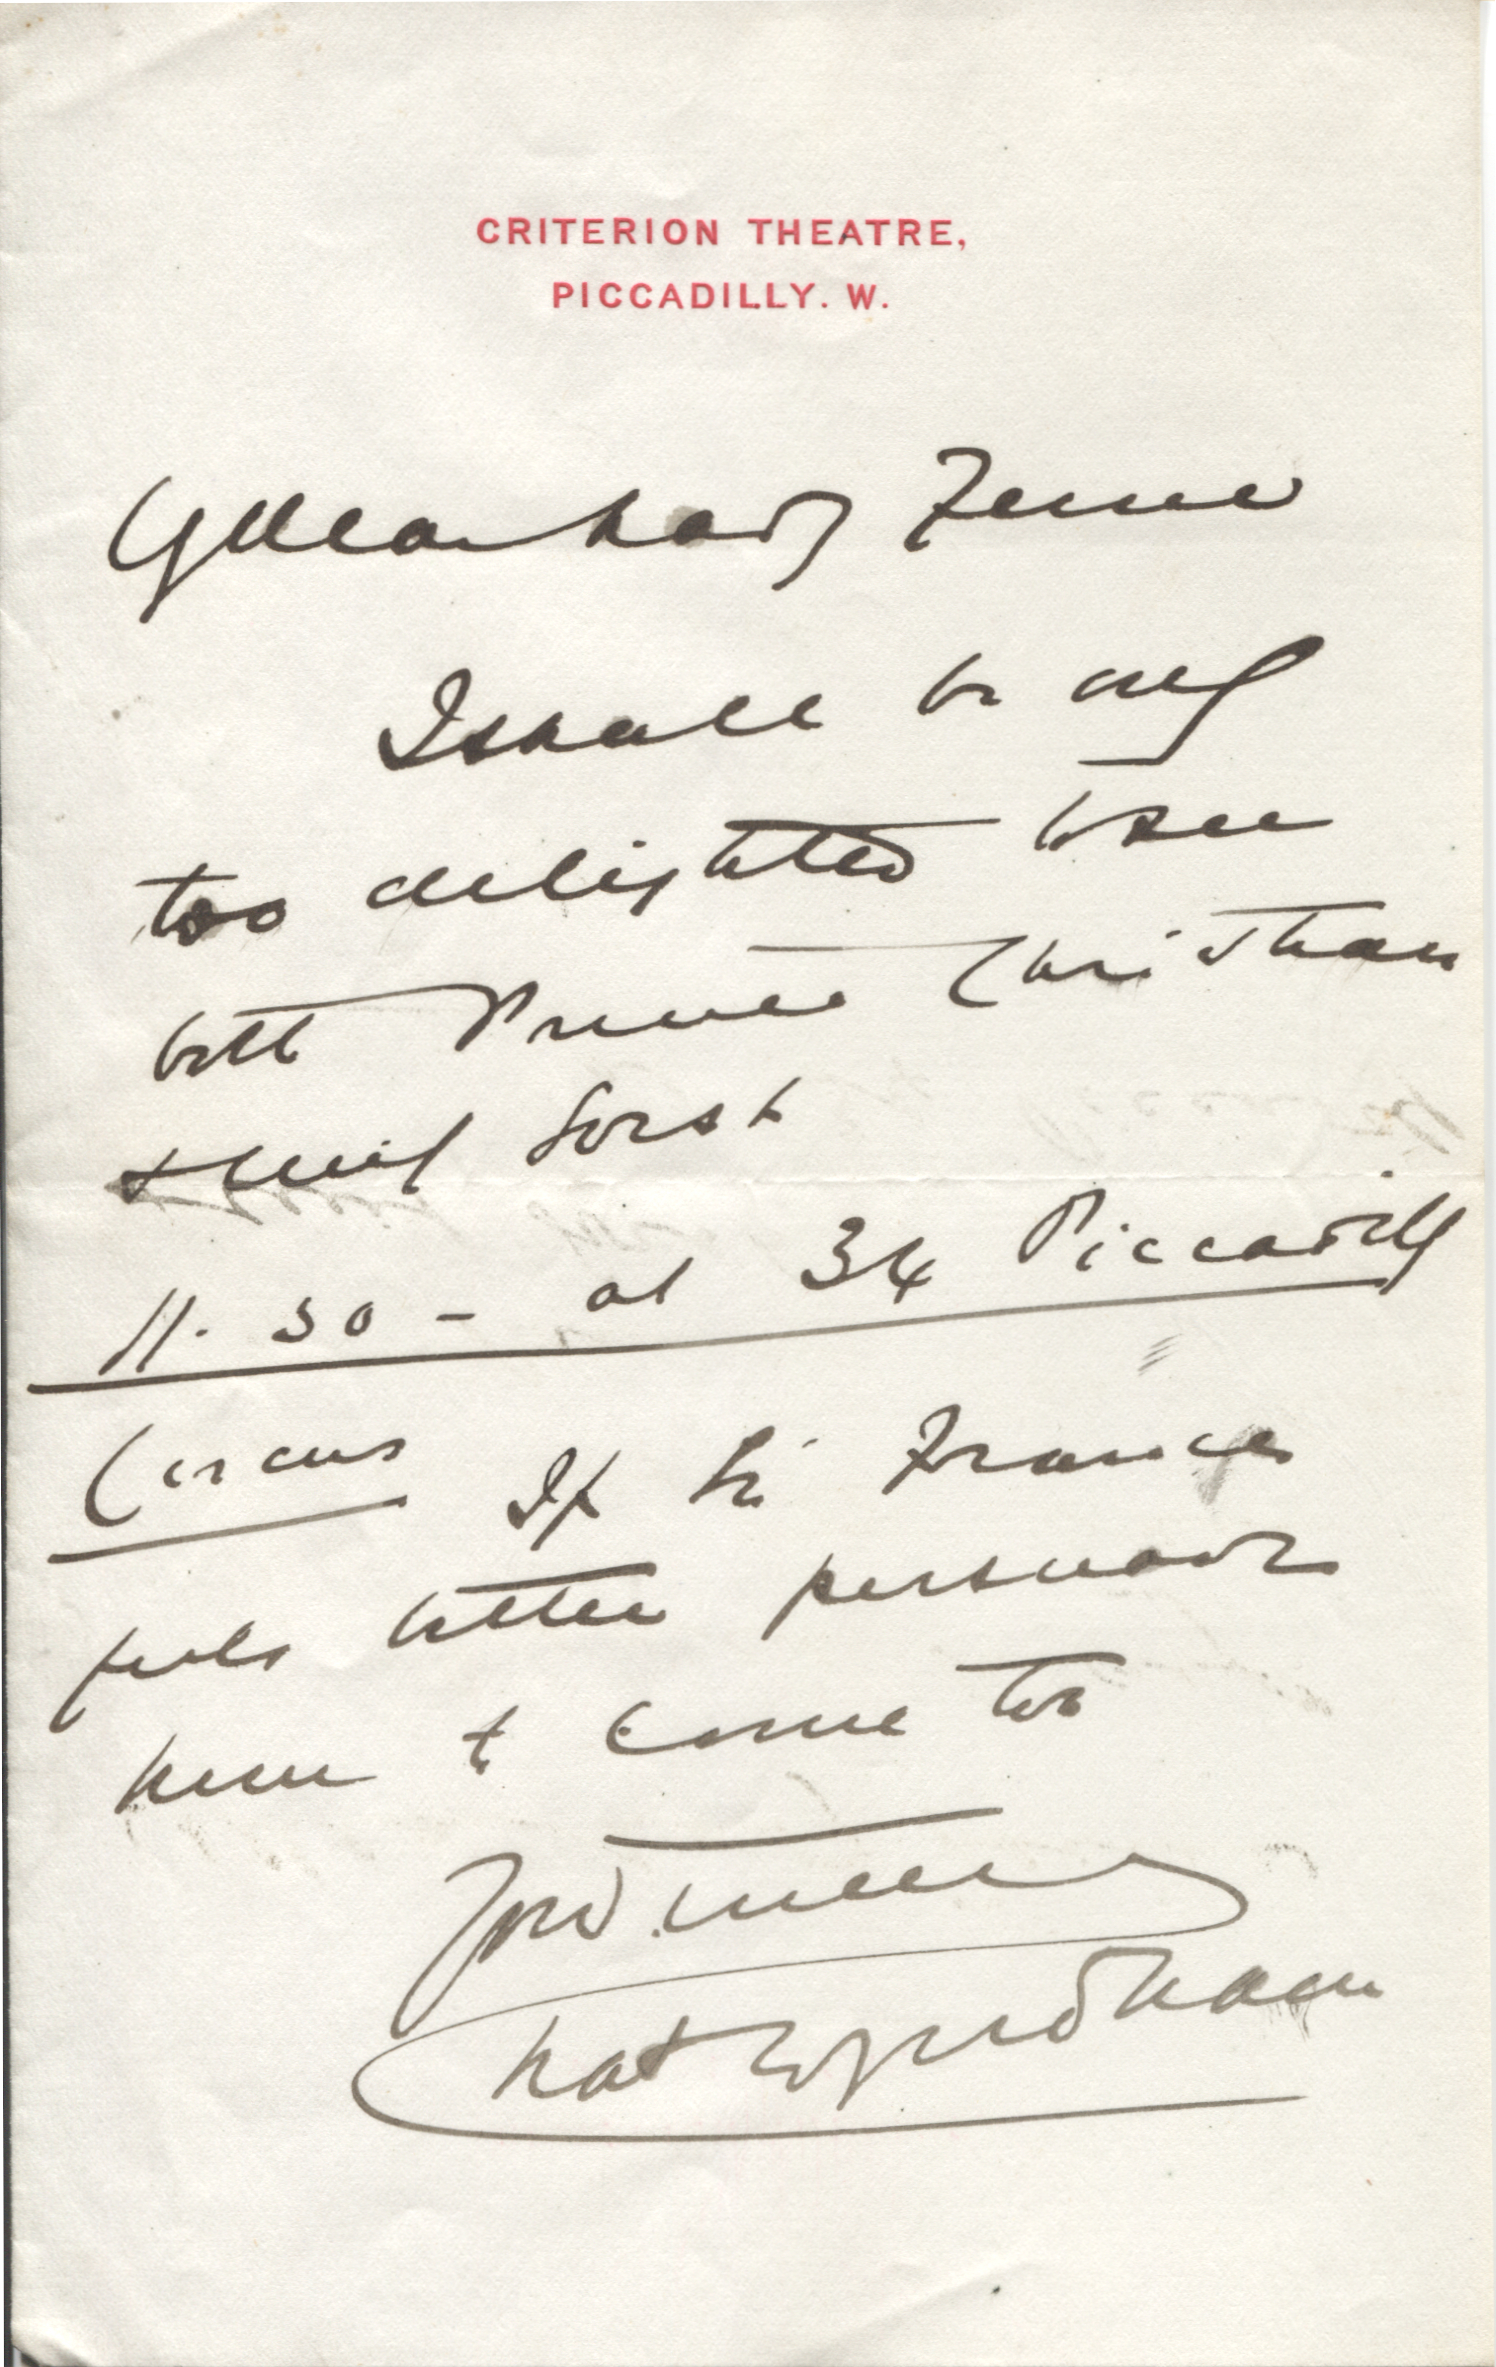 CRITERION THEATRE,
PICCADILLY. W.
My dear Lady Jeune
I shall be only
too delighted to see
both Prince Christian
& Miss Gorst
11.30 - at 34 Piccadilly
Circus If Sir Francis
feels better persuade
him to come too
Chas Wyndham